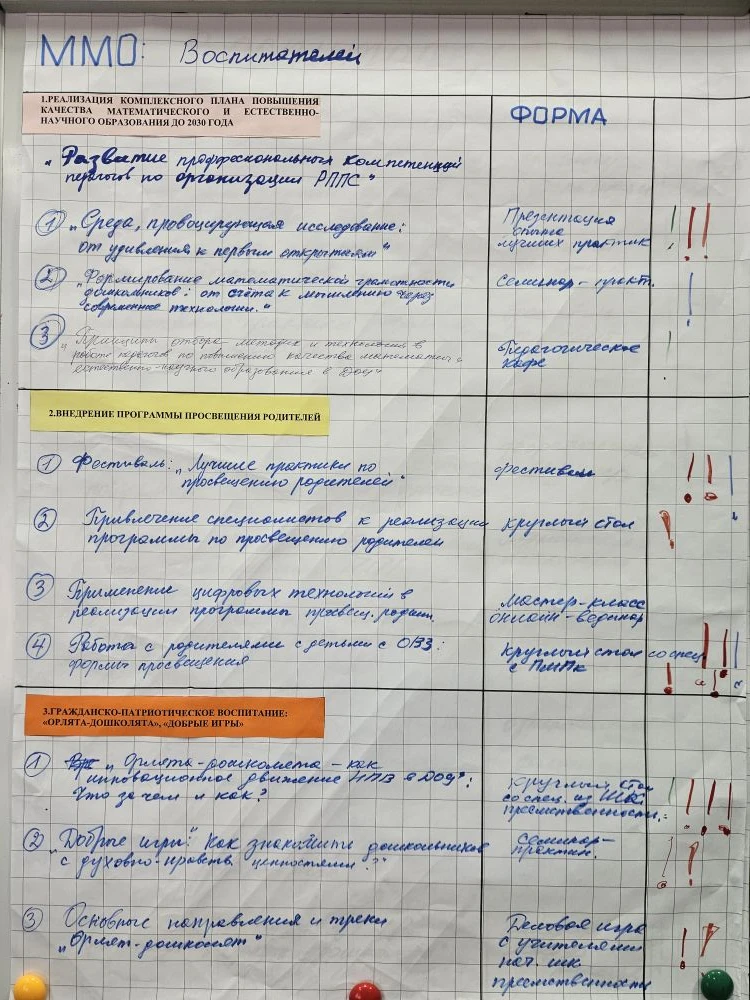 ММО: Воспитателей
1.РЕАЛИЗАЦИЯ КОМПЛЕКСНОГО ПЛАНА ПОВЫШЕНИЯ
КАЧЕСТВА МАТЕМАТИЧЕСКОГО И ЕСТЕСТВЕННО-
НАУЧНОГО ОБРАЗОВАНИЯ ДО 2030 ГОДА
ФОРМА
„Развитие профессиональных компетенций
педагогов по организации РППС"
1 „Среда, провоцирующая исследование:
от удивления к первым открытиям"
Презентация
опыта
лучших практик
2 „Формирование математической грамотности
дошкольников: от счёта к мышлению через
современные технологии."
Семинар-практ.
3 „Принципы отбора методик и технологий в
работе педагогов по повышению качества математич. и
естественно-научного образования в ДОУ"
„Педагогическое
кафе
2.ВНЕДРЕНИЕ ПРОГРАММЫ ПРОСВЕЩЕНИЯ РОДИТЕЛЕЙ
1 Фестиваль: „Лучшие практики по
просвещению родителей"
фестиваль
2 Привлечение специалистов к реализации
программы по просвещению родителей
круглый стол
3 Применение цифровых технологий в
реализации программы просвещ. родит.
мастер-класс
онлайн-вебинар
4 Работа с родителями с детьми с ОВЗ:
формы просвещения
круглый стол со спец.
с ПМПк
3.ГРАЖДАНСКО-ПАТРИОТИЧЕСКОЕ ВОСПИТАНИЕ:
«ОРЛЯТА-ДОШКОЛЯТА», «ДОБРЫЕ ИГРЫ»
1 „Орлята-дошколята - как
инновационное движение НПВ в ДОУ":
Что зачем и как?
круглый стол
со спец. из шк.
преемственности.
2 „Добрые игры": как знакомить дошкольников
с духовно-нравств. ценностями?"
Семинар-
практик.
3 Основные направления и треки
„Орлят-дошколят"
Деловая игра
с учителями
нач. шк
преемственности